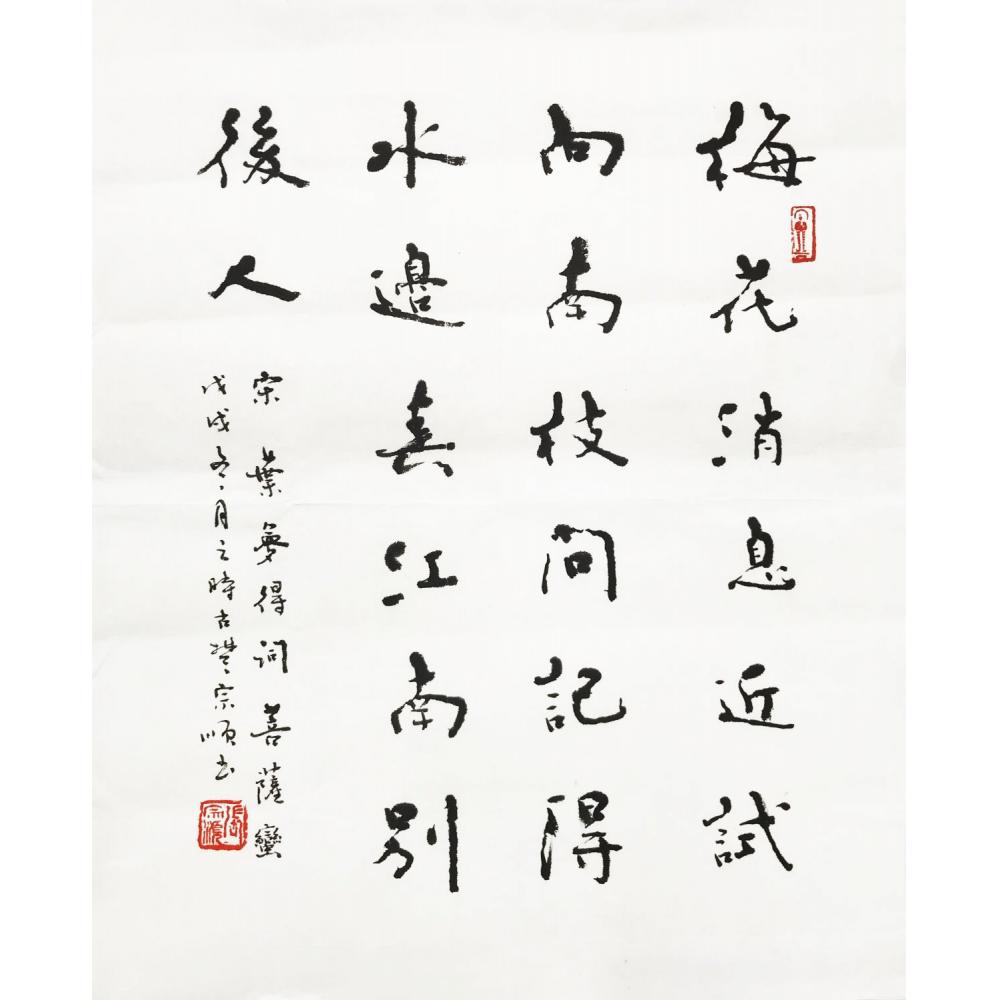 梅花消息近試
向南枝問記得
水邊春江南別
後人
宋葉夢得詞菩薩蠻
戊戌冬月之時古楚宗順书
張宗順